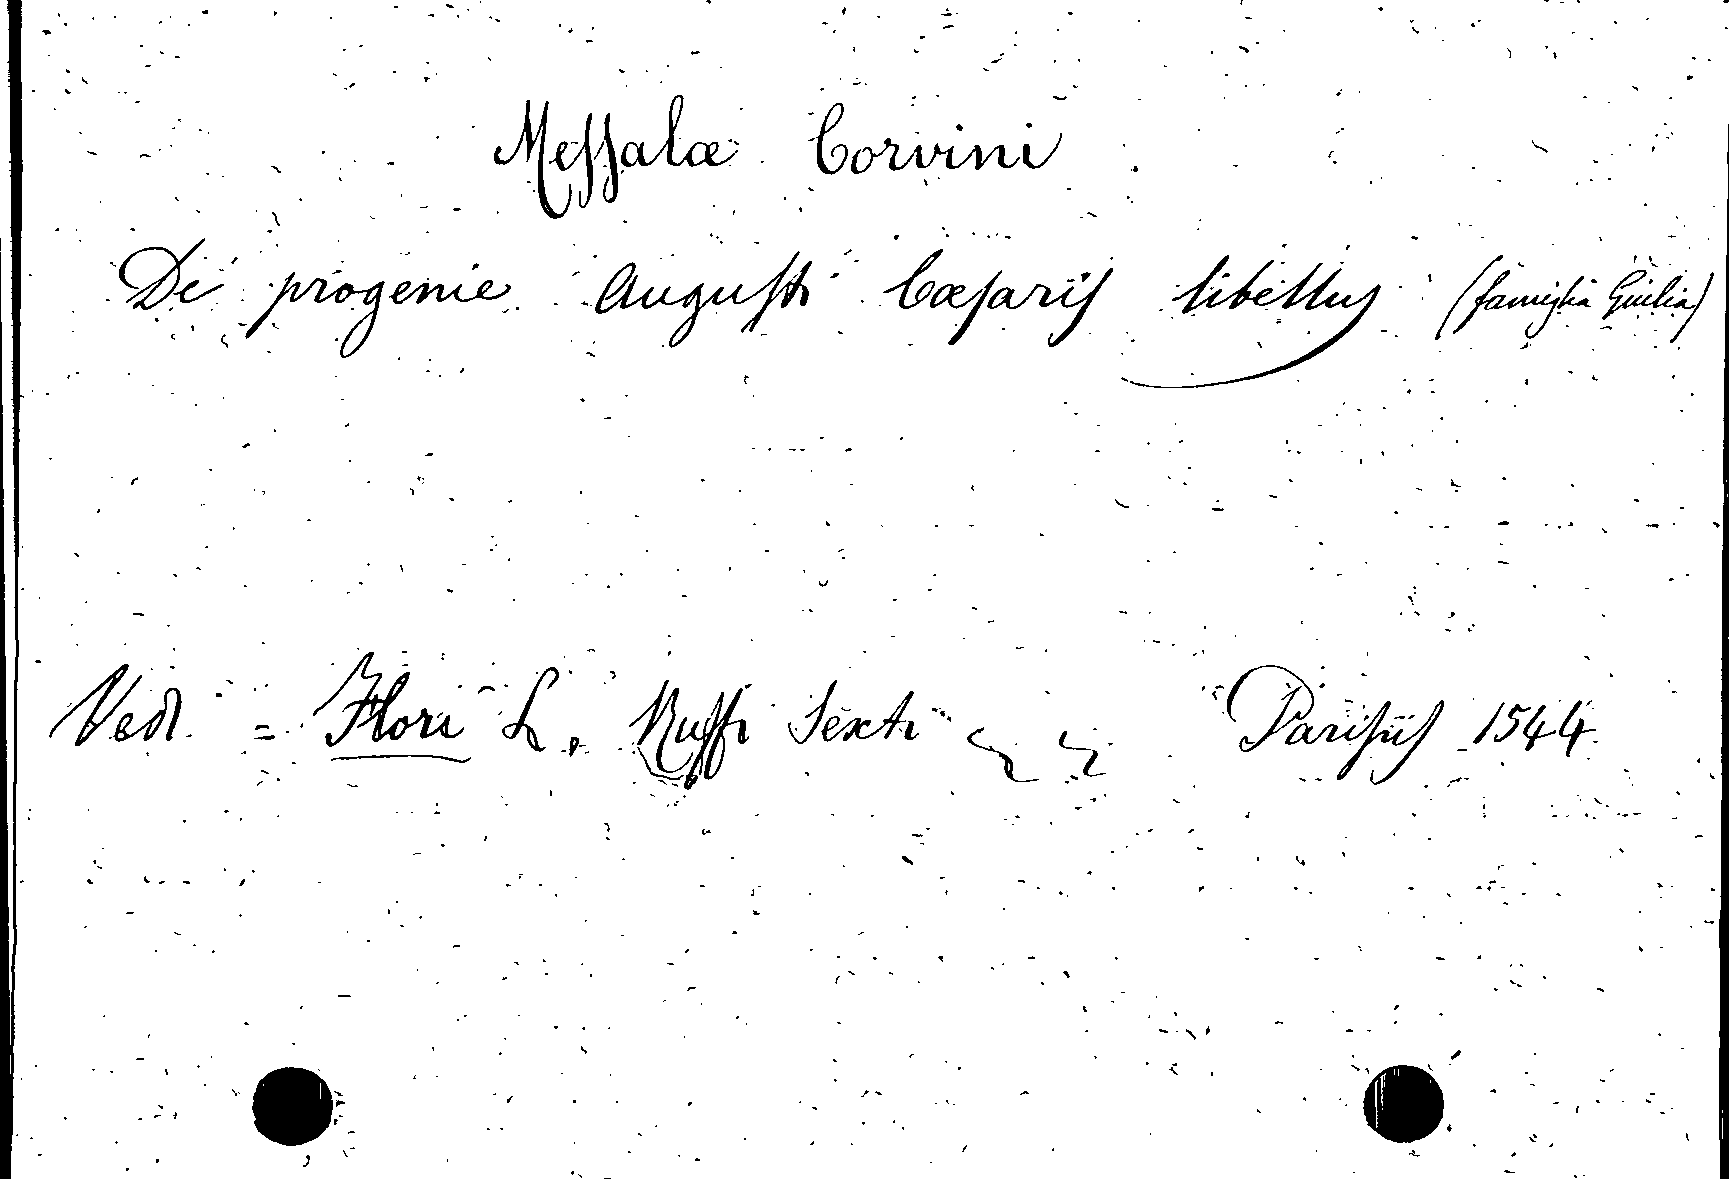 Messalæ Corvini
De progenie Augusti Cæsaris libellus (famiglia Giulia)
Vedi = Flori L. Ruffi Sexti Parisiis 1544